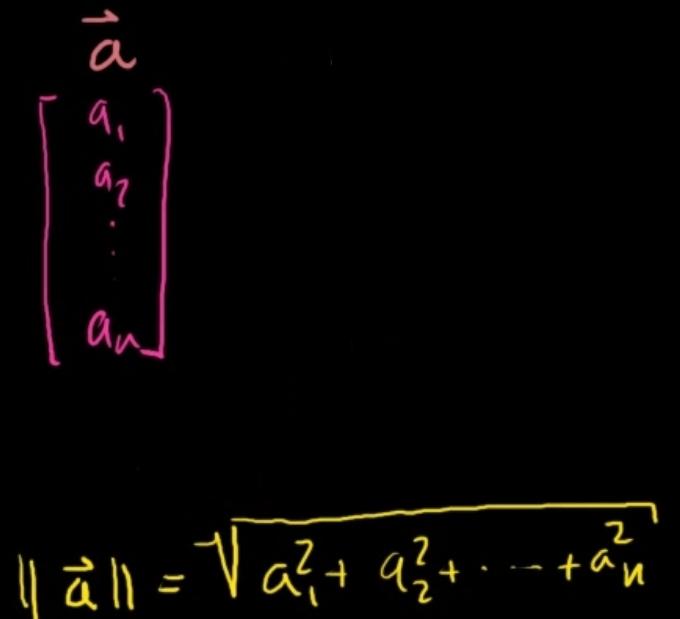 a⃗
a₁
a₂
⋮
aₙ
‖a⃗‖ = √(a₁² + a₂² + ⋯ + aₙ²)